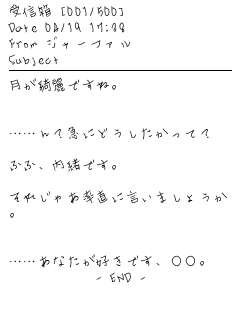 受信箱 [001/500]
Date 08/19 17:38
From ジャーファル
Subject
月が綺麗ですね。
……ん？急にどうしたかって？
ふふ、内緒です。
それじゃあ率直に言いましょうか
。
……あなたが好きです、〇〇。
- END -